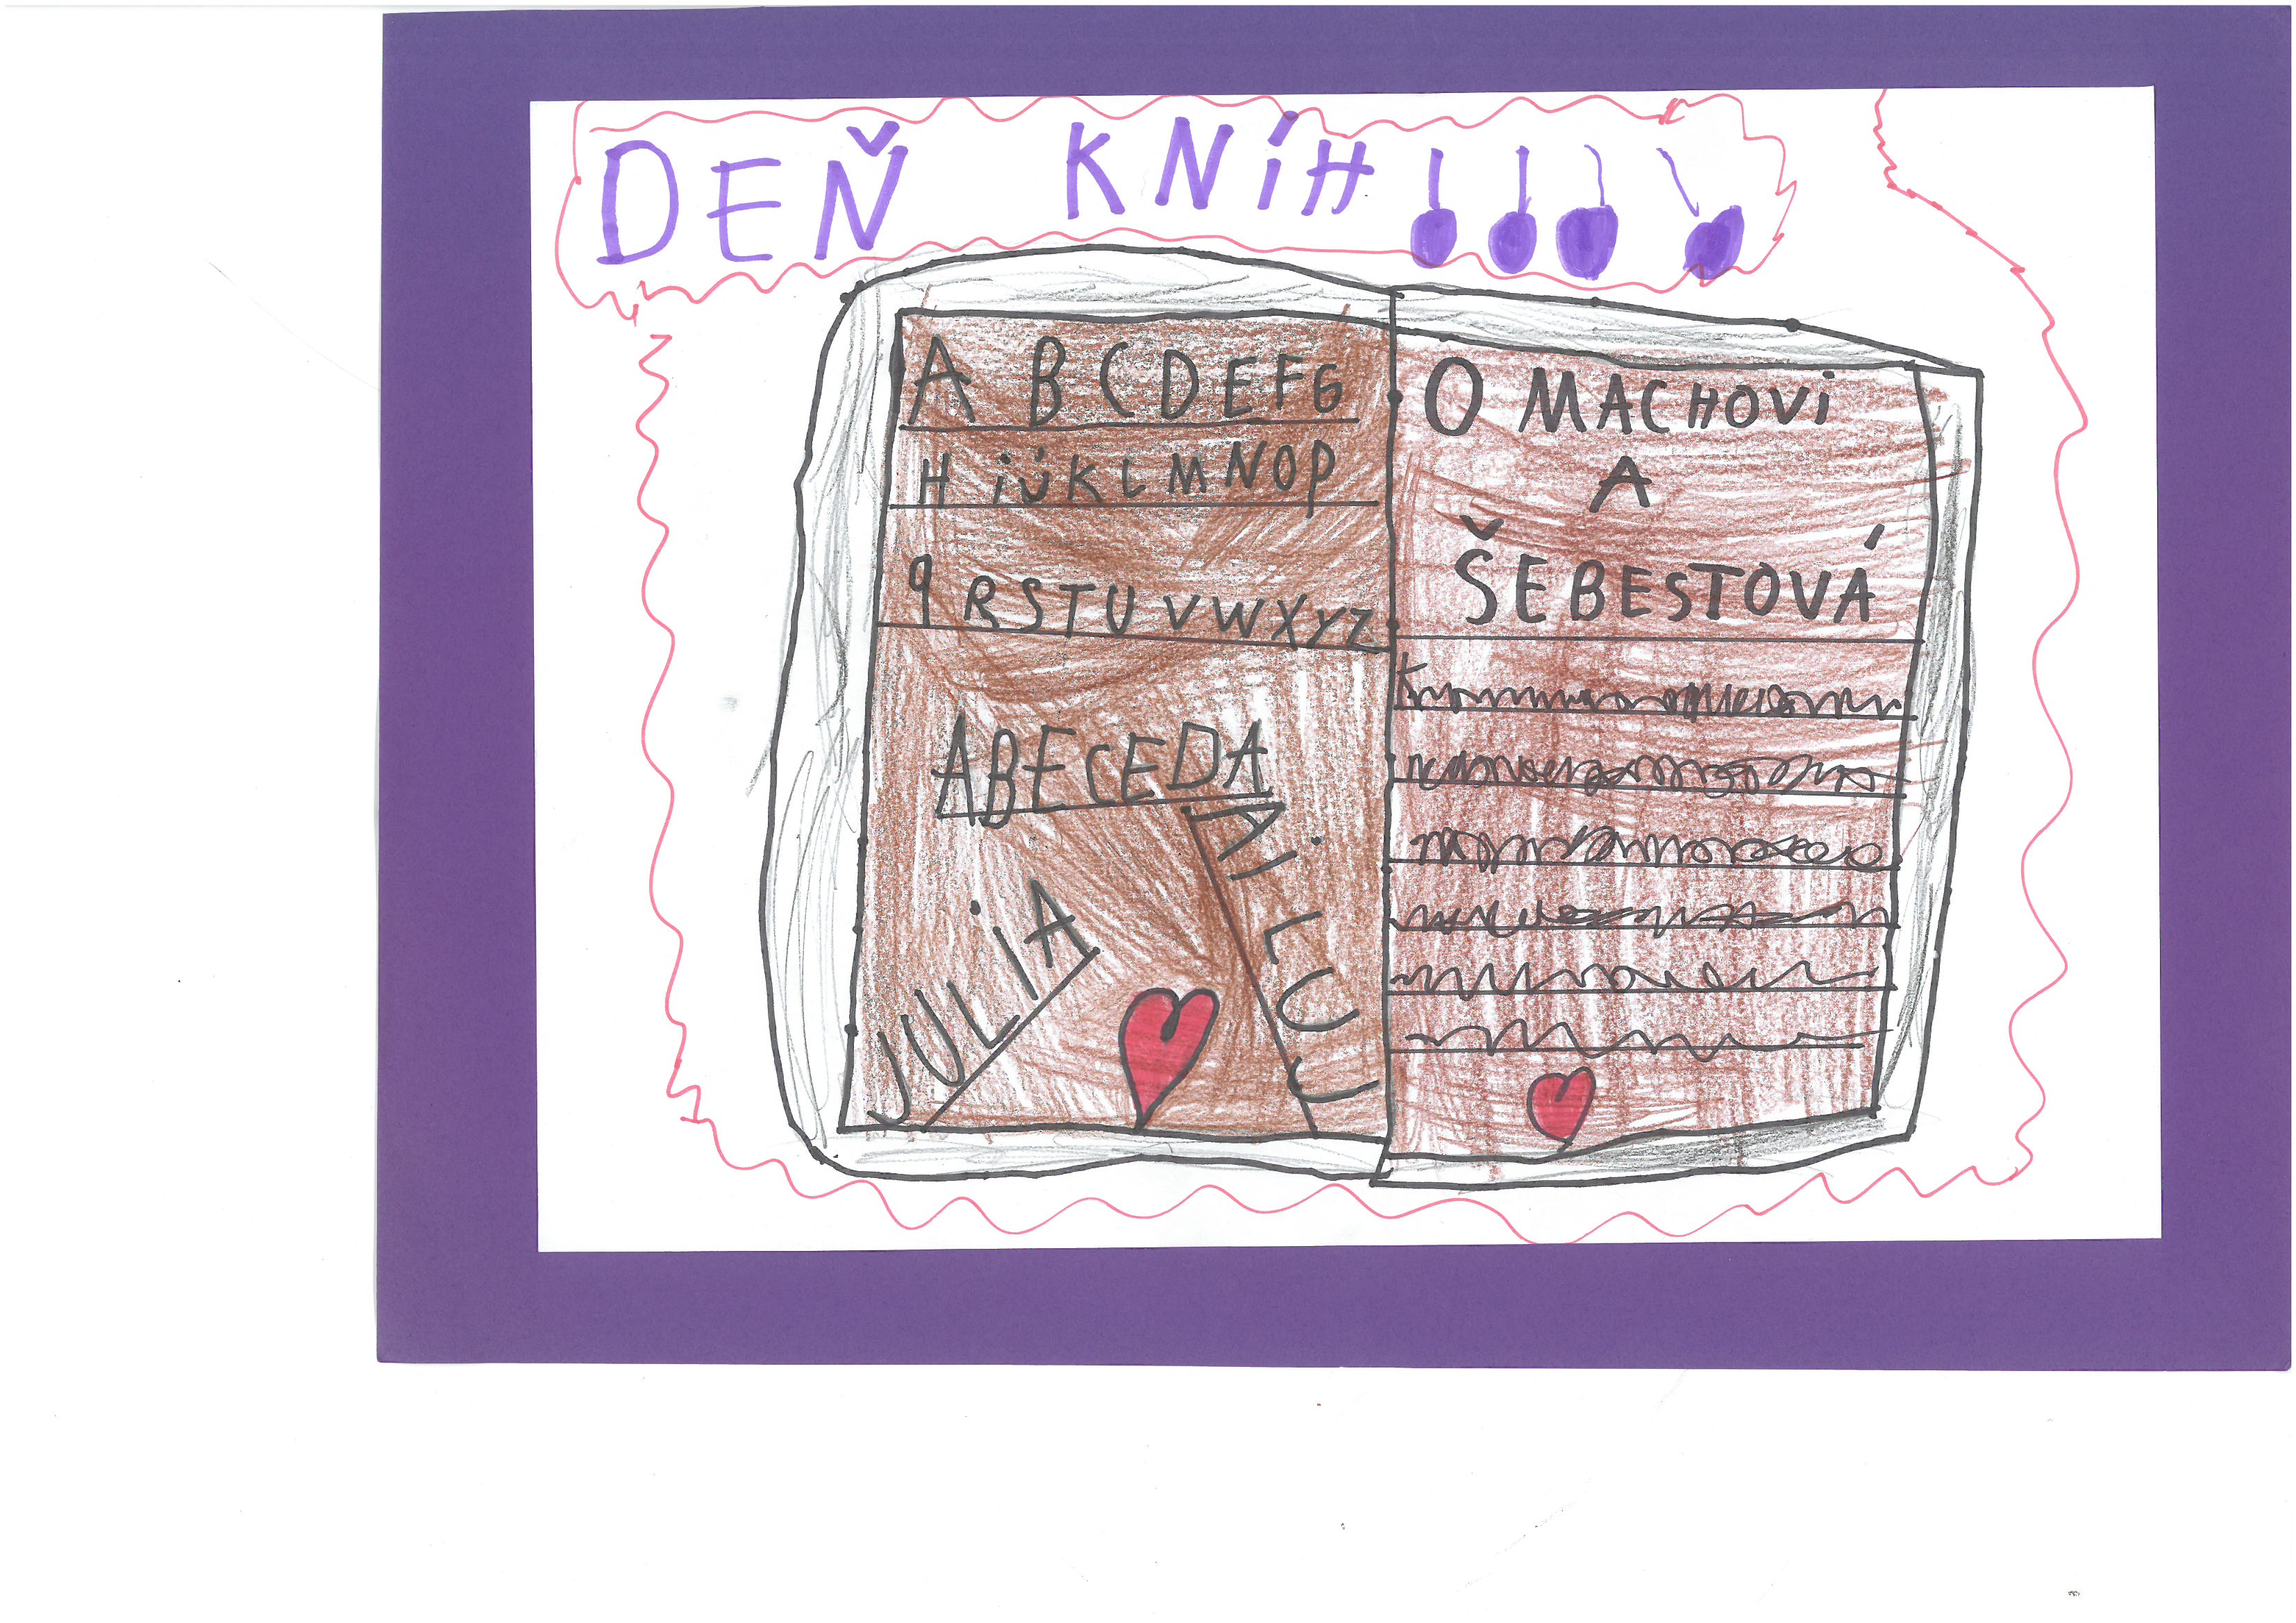 DEŇ KNÍH!!!!
A B C D E F G
H i j K L M N O P
q R S T U V W X Y Z
ABECEDA
JULiA
O MACHOVi
A
ŠEBESTOVÁ